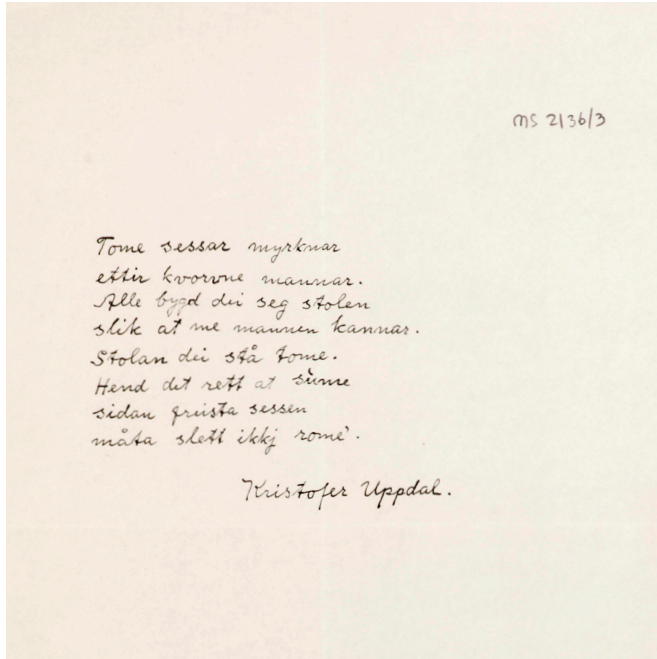 MS 2136/3
Tome sessar myrknar
ettir kvorvne mannar.
Alle bygd dei seg stolen
slik at me mannen kannar.
Stolan dei stå tome.
Hend det rett at sume
sidan freista sessen
måta slett ikkj rome'.
Kristofer Uppdal.